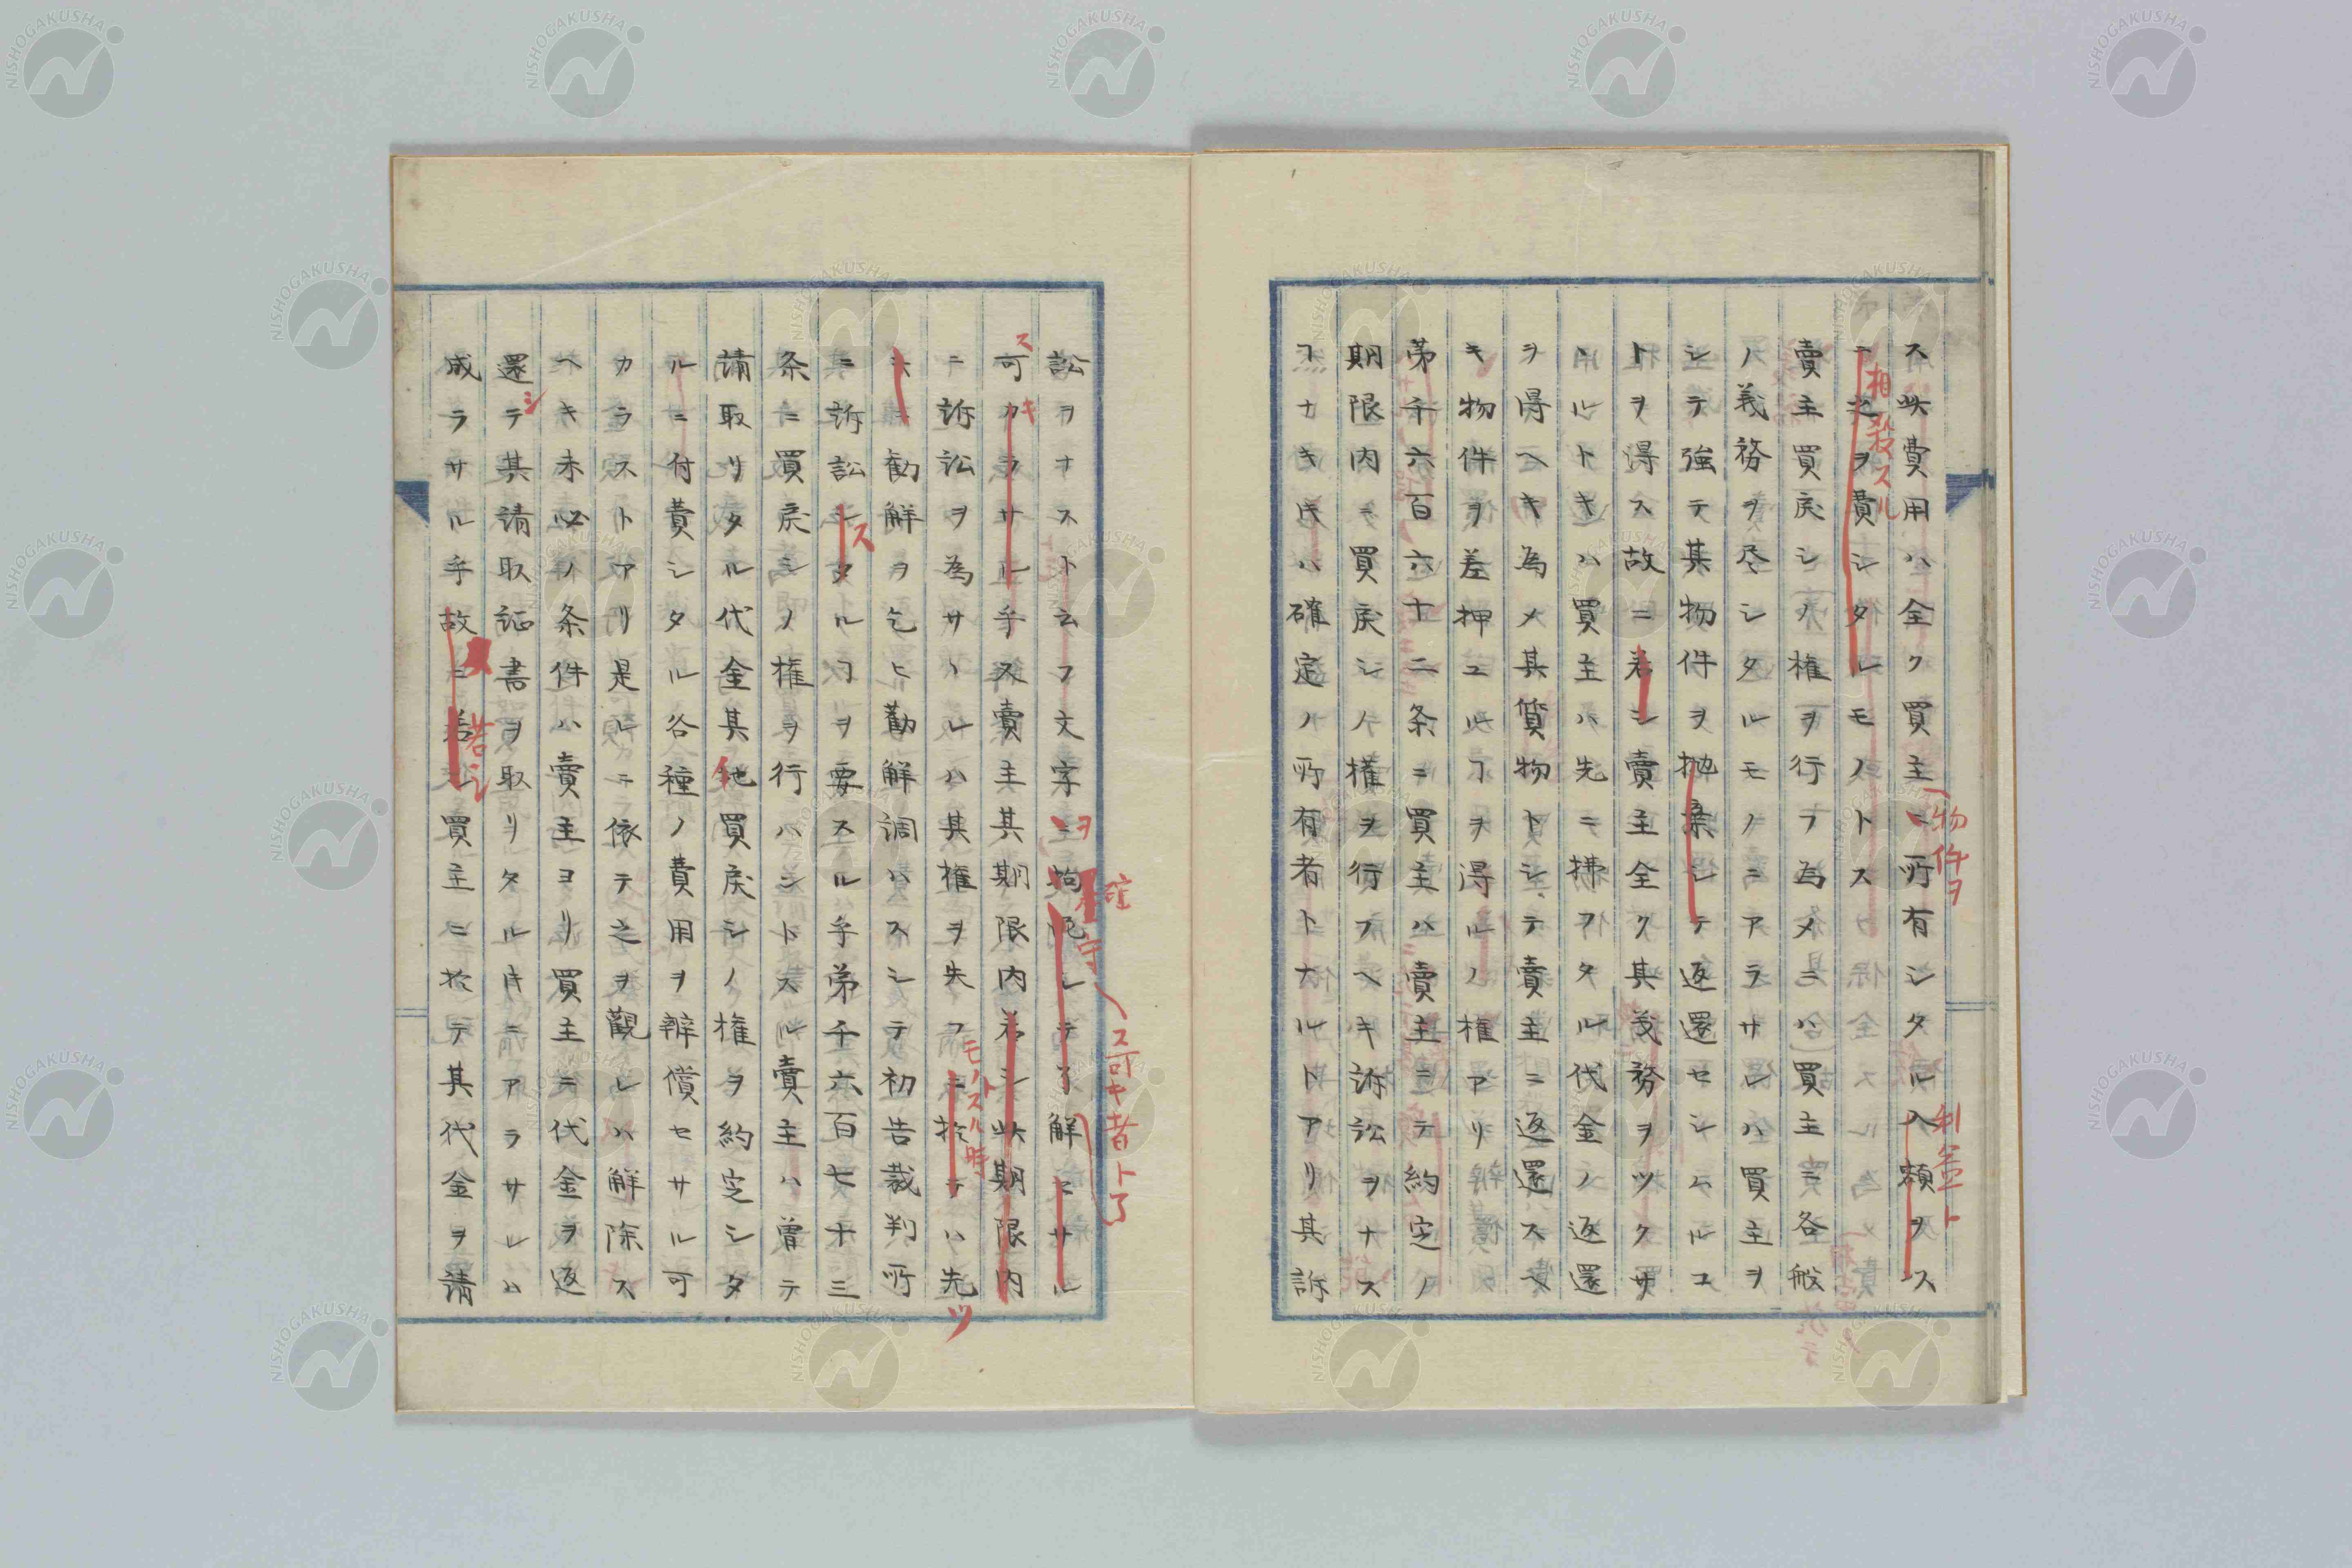 ス此費用ハ全ク買主ニ所有シタル入額ヲス
物件ヲ
利益ト
ニ之ヲ費シタルモノトス
相殺スル
賣主買戻シノ権ヲ行フ為メニハ買主ニ各般
ノ義務ヲ尽シタルモノニアラサレハ買主ヲ
シテ強テ其物件ヲ抛棄シテ返還セシムルコ
トヲ得ス故ニ若シ賣主全ク其義務ヲツクサ
ヽルトキハ買主ハ先ニ拂フタル代金ノ返還
ヲ得ヘキ為メ其質物トシテ賣主ニ返還スヘ
キ物件ヲ差押ユルヿヲ得ルノ権アリ
第千六百六十二条ニ買主ハ賣主ニテ約定ノ
期限内ニ買戻シノ権ヲ行フヘキ訴訟ヲナス
ヿナキ時ハ確定ノ所有者トナルトアリ其訴
訟ヲナスト云フ文字ニ拘泥シテ了解セサル
ヲ
守
ス可キ者ト了
可カラサル乎又賣主其期限内若シ此期限内
ス
キ
ニ訴訟ヲ為サヽルハ其権ヲ失フニ於テハ先
モノトスル時
ツ
勧解ヲ乞ヒ勸解調ハスシテ初告裁判所
ニ訴訟シタルヿヲ要スル乎第千六百七十三
ス
条ニ買戻シノ権ヲ行ハントスル賣主ハ曽テ
請取リタル代金其他買戻シノ権ヲ約定シタ
ルニ付費シタル各種ノ費用ヲ辨償セサル可
カラストアリ是レニ依テ之ヲ觀レハ解除ス
ヘキ未必ノ条件ハ賣主ヨリ買主ニ代金ヲ返
還テ其請取証書ヲ取リタル時ニアラサレハ
シ
成ラサル乎故ニ若シ買主ニ於テ其代金ヲ請
若シ